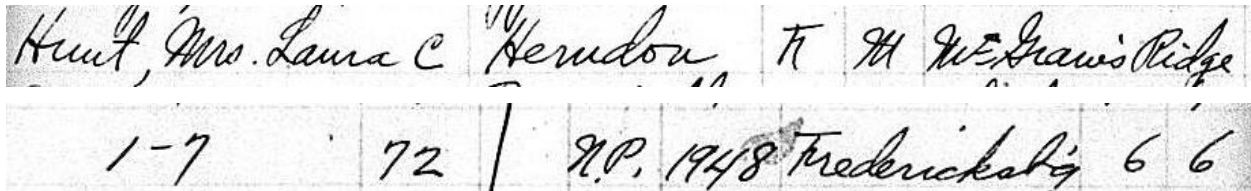 Hunt, Mrs. Laura C Herndon F M McGraw's Ridge
1-7 72 N.P. 1948 Fredericksb'g 6 6